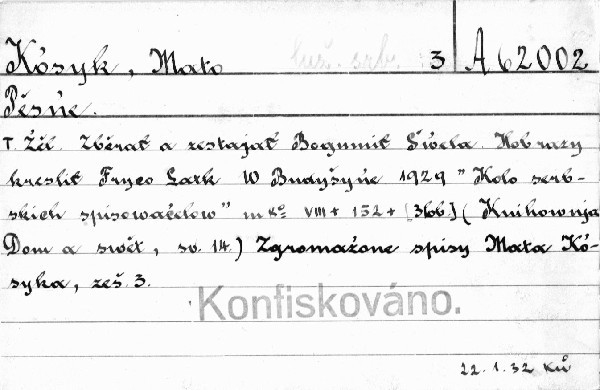 Kósyk, Mato luž. srb. 3 A 62002
Pěsńe.
T. Žěl. Zběrał a zestajał Bogumił Šwela. Wobrazy
kreslił Fryco Latk W Budyšyńe 1929 "Koło serb-
skich spisowaćelow" m 8° VIII + 152 + [3bb.] (Knihownja
Dom a swět, sv. 14.) Zgromaźone spisy Mata Kó-
syka, zeš. 3.
Konfiskováno.
22.1.32 Ků